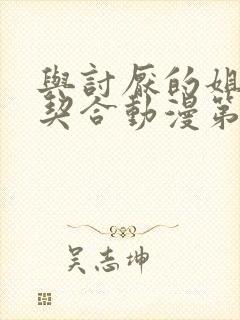 與討厭的姐
契合動漫第
吴志坤